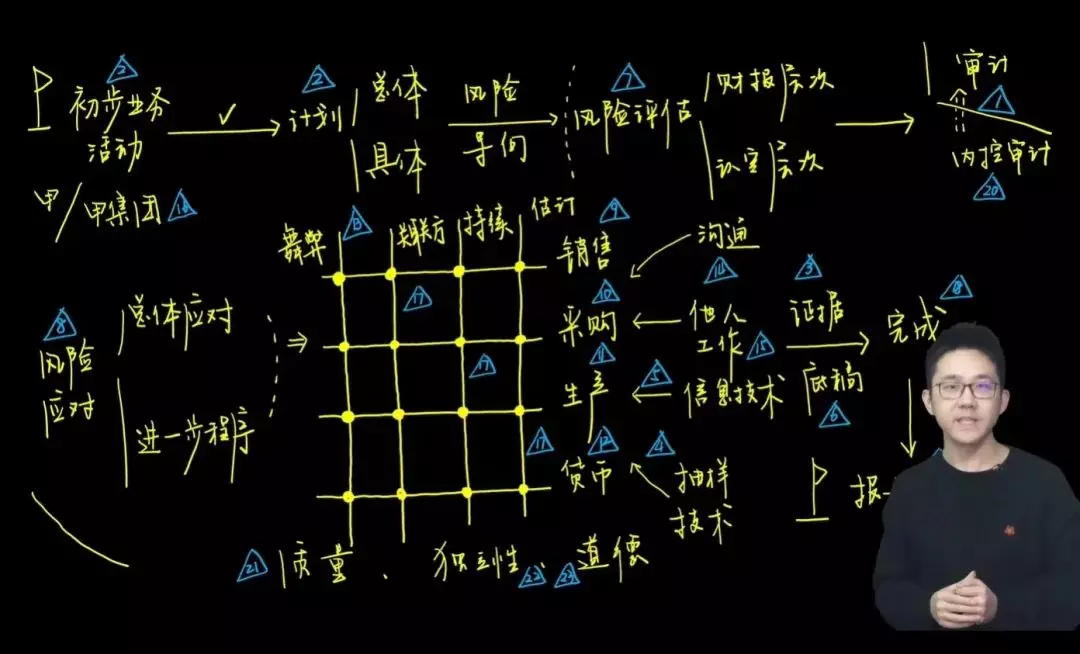 2
初步业务
活动
2
计划
总体
具体
风险
导向
7
风险评估
财报层次
认定层次
审计
1
内控审计
20
甲/甲集团
16
舞弊
13
关联方
持续
估计
9
销售
沟通
17
10
采购
14
他人
工作
15
3
证据
底稿
6
完成
8
风险
应对
总体应对
进一步程序
⇒
17
11
生产
5
信息技术
17
12
货币
4
抽样
技术
报
21
质量、独立性、道德
22
23